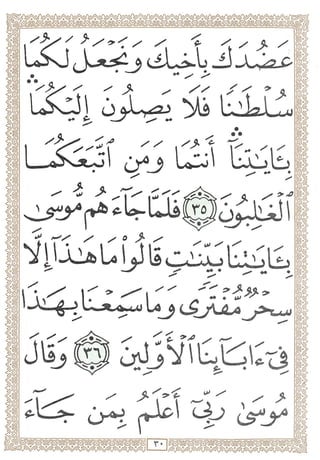 عَضُدَكَ بِأَخِيكَ وَنَجْعَلُ لَكُمَا
سُلْطَـٰنًا فَلَا يَصِلُونَ إِلَيْكُمَا ۛ
بِـَٔايَـٰتِنَآ ۛ أَنتُمَا وَمَنِ ٱتَّبَعَكُمَا
ٱلْغَـٰلِبُونَ ٣٥ فَلَمَّا جَآءَهُم مُّوسَىٰ
بِـَٔايَـٰتِنَا بَيِّنَـٰتٍ قَالُوا۟ مَا هَـٰذَآ إِلَّا
سِحْرٌ مُّفْتَرًى وَمَا سَمِعْنَا بِهَـٰذَا
فِىٓ ءَابَآئِنَا ٱلْأَوَّلِينَ ٣٦ وَقَالَ
مُوسَىٰ رَبِّىٓ أَعْلَمُ بِمَن جَآءَ
٣٠